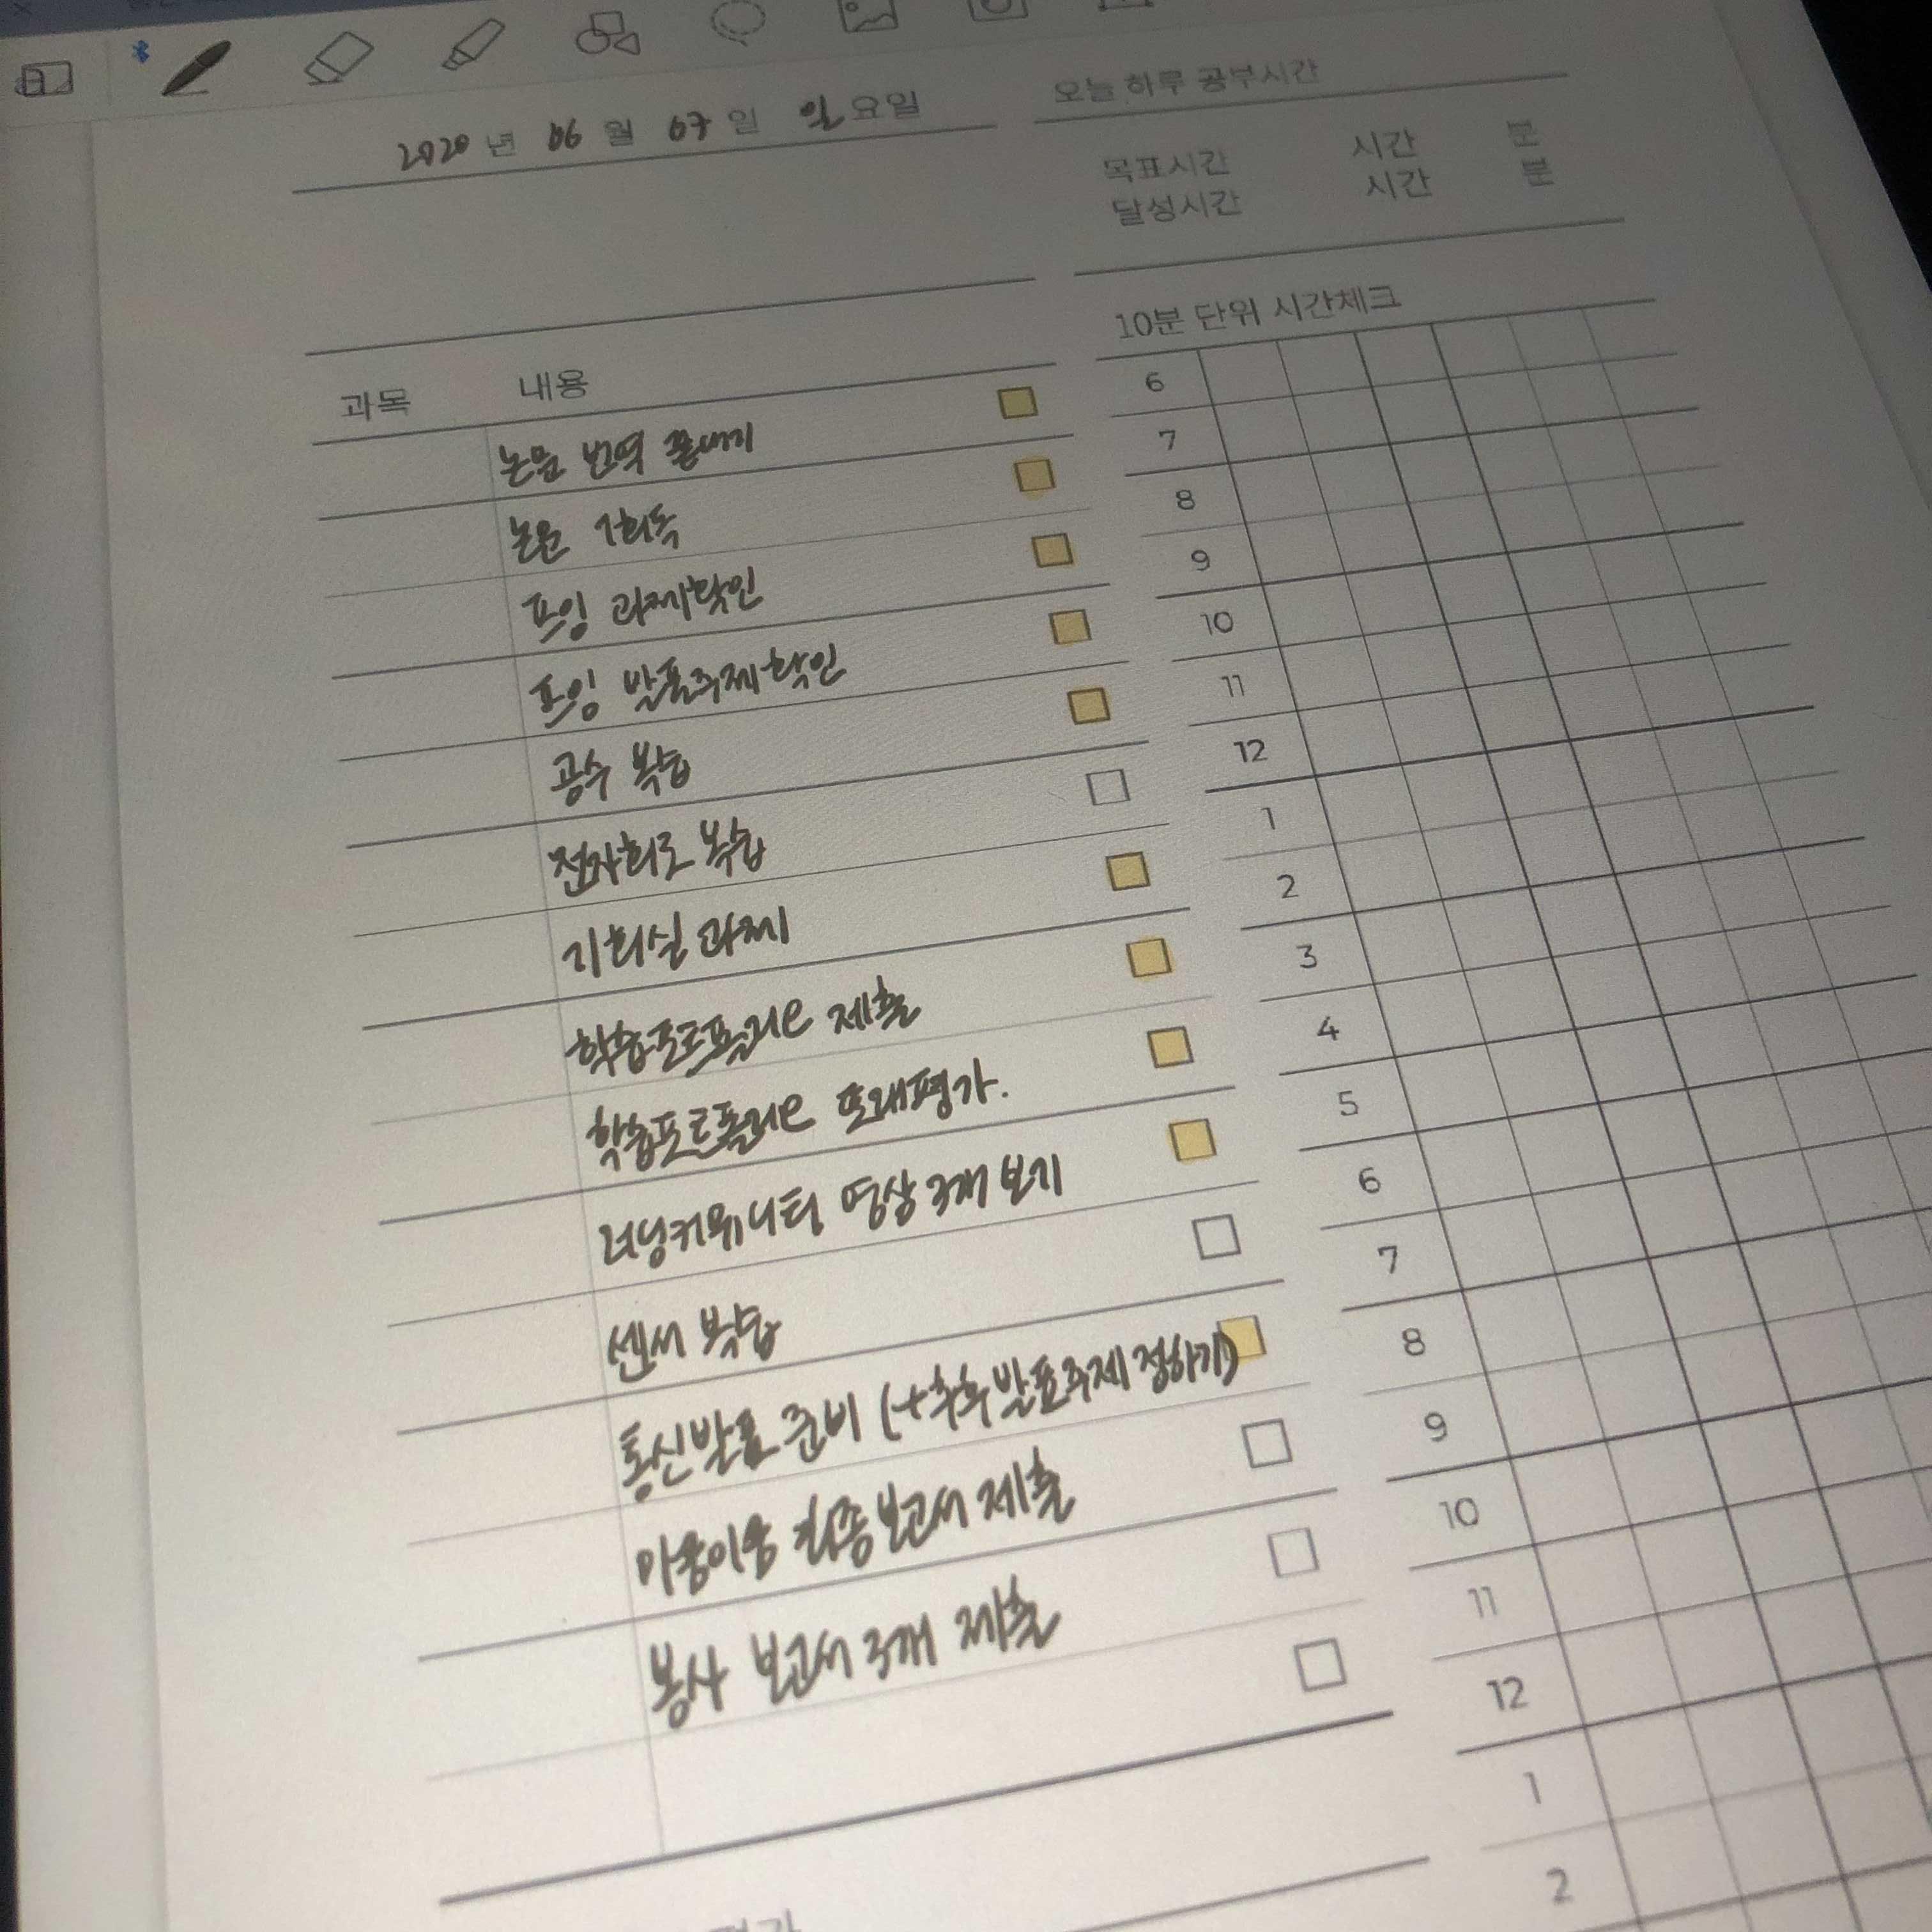 2020 년 06 월 07 일 일요일
오늘 하루 공부시간
목표시간 시간 분
달성시간 시간 분
과목 내용
논문 번역 끝내기
논문 1회독
프잉 과제확인
프잉 발표주제확인
공수 복습
전자회로 복습
기회실 과제
학습포트폴리오 제출
학습포트폴리오 또래평가.
러닝커뮤니티 영상 3개 보기
센서 복습
통신발표 준비 (+추후발표주제 정하기)
마중이음 최종보고서 제출
봉사 보고서 3개 제출
10분 단위 시간체크
6
7
8
9
10
11
12
1
2
3
4
5
6
7
8
9
10
11
12
1
2